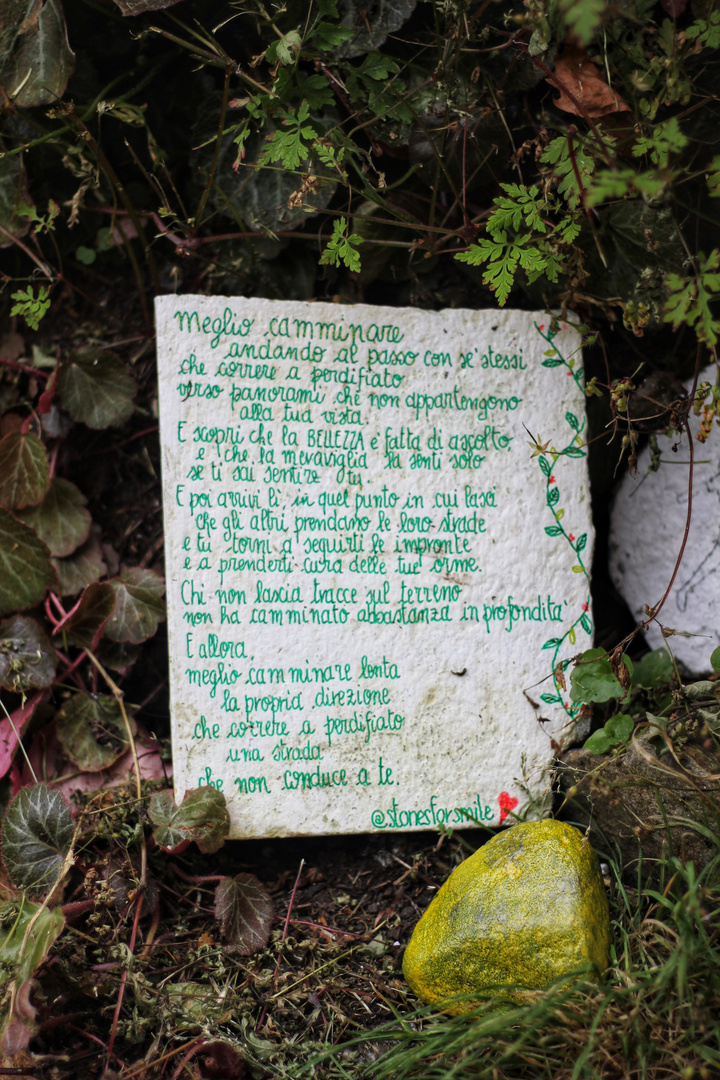 Meglio camminare
andando al passo con se' stessi
che correre a perdifiato
verso panorami che non appartengono
alla tua vista.
E scopri che la BELLEZZA e' fatta di ascolto,
e che la meraviglia la senti solo
se ti sai sentire tu.
E poi arrivi lì, in quel punto in cui lasci
che gli altri prendano le loro strade
e tu torni a seguirti le impronte
e a prenderti cura delle tue orme.
Chi non lascia tracce sul terreno
non ha camminato abbastanza in profondita'
E allora,
meglio camminare lenta
la propria direzione
che correre a perdifiato
una strada
che non conduce a te.
@stonesforsmile